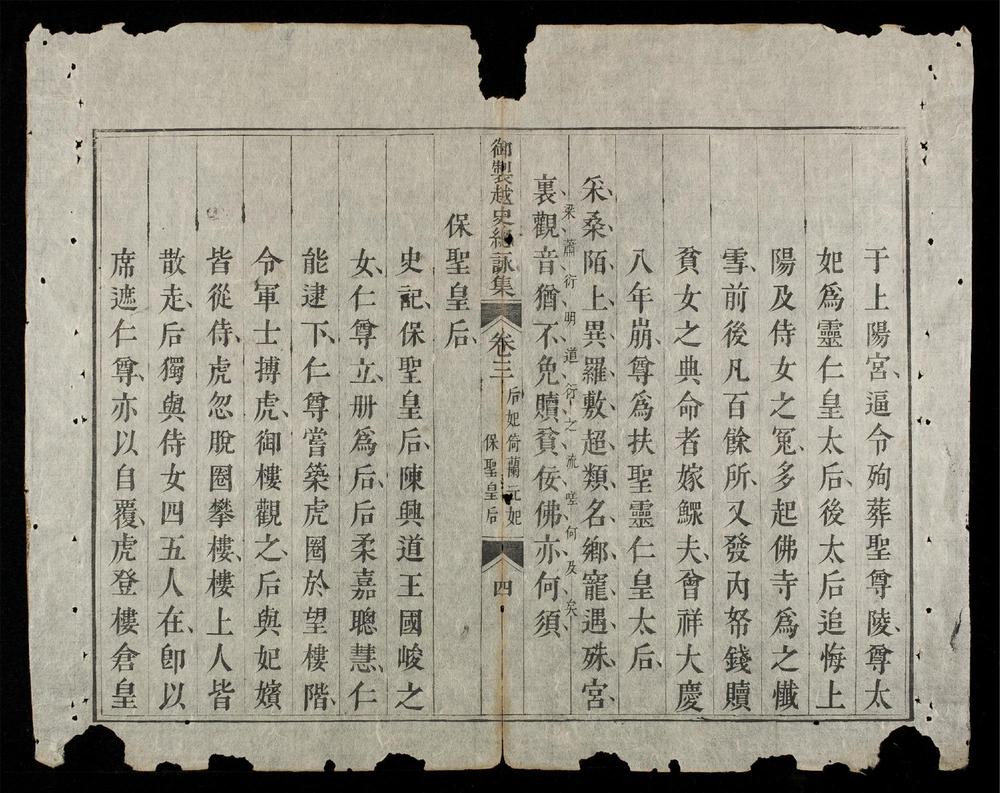 于上陽宮、逼令殉葬聖尊陵、尊太
妃爲靈仁皇太后、後太后追悔上
陽及侍女之冤、多起佛寺爲之懺
雪、前後凡百餘所、又發內帑錢贖
貧女之典命者嫁鰥夫、會祥大慶
八年崩、尊爲扶聖靈仁皇太后、
采桑陌上異羅敷、超類名鄉寵遇殊、宮
裏觀音猶不免、贖貧佞佛亦何須
梁蕭衍明道衍之流、嗟何及矣
御製越史總詠集 卷三 后妃倚蘭元妃 保聖皇后 四
保聖皇后、
史記、保聖皇后、陳興道王國峻之
女、仁尊立、册爲后、后柔嘉聰慧、仁
能逮下、仁尊嘗築虎圈於望樓階、
令軍士搏虎、御樓觀之、后與妃嬪
皆從侍、虎忽脫圈攀樓、樓上人皆
散走、后獨與侍女四五人在、卽以
席遮仁尊、亦以自覆、虎登樓倉皇